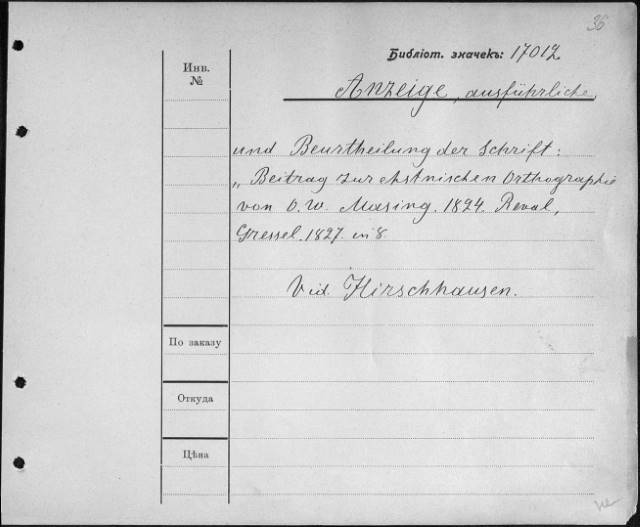 36
Библіот. значекъ: 17012
Инв.
№
Anzeige, ausführliche,
und Beurtheilung der Schrift:
„Beitrag zur ehstnischen Orthographie
von O. W. Masing. 1824. Reval,
Gressel. 1827. in 8.
Vid. Hirschhausen.
По заказу
Откуда
Цѣна